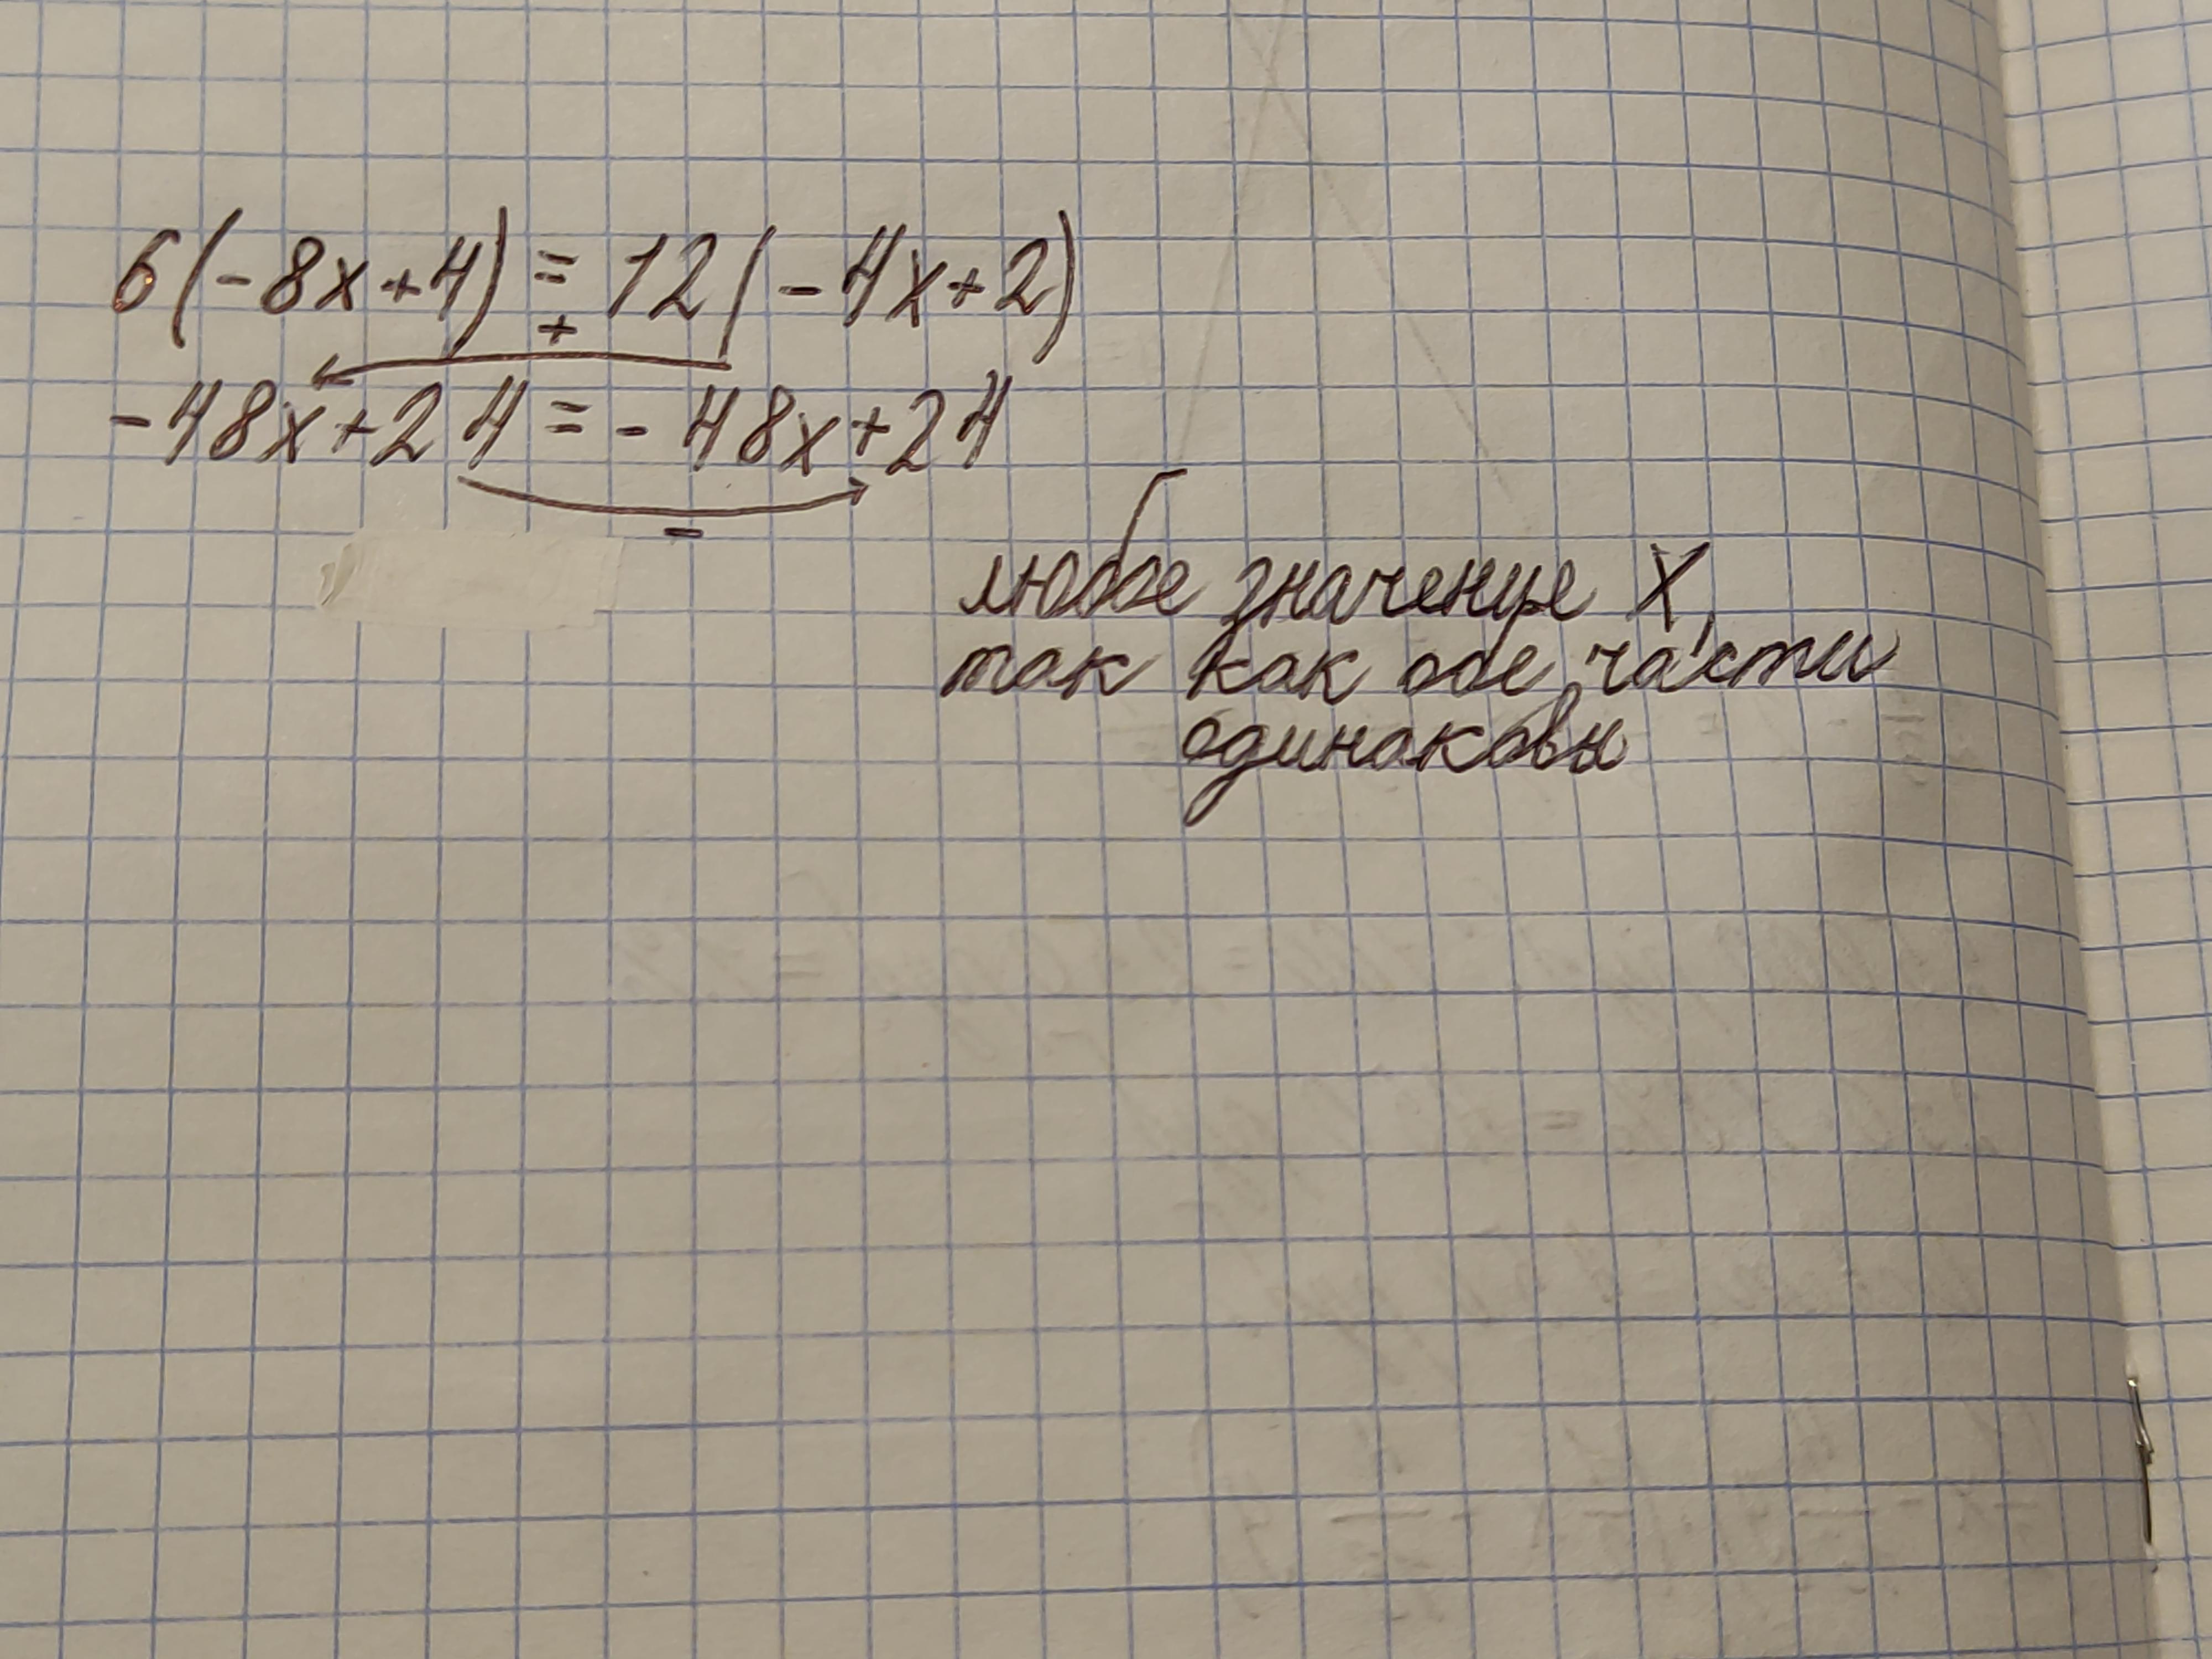 6(-8x+4) = 12(-4x+2)
+
-48x+24 = -48x+24
-
любое значение X,
так как обе части
одинаковы